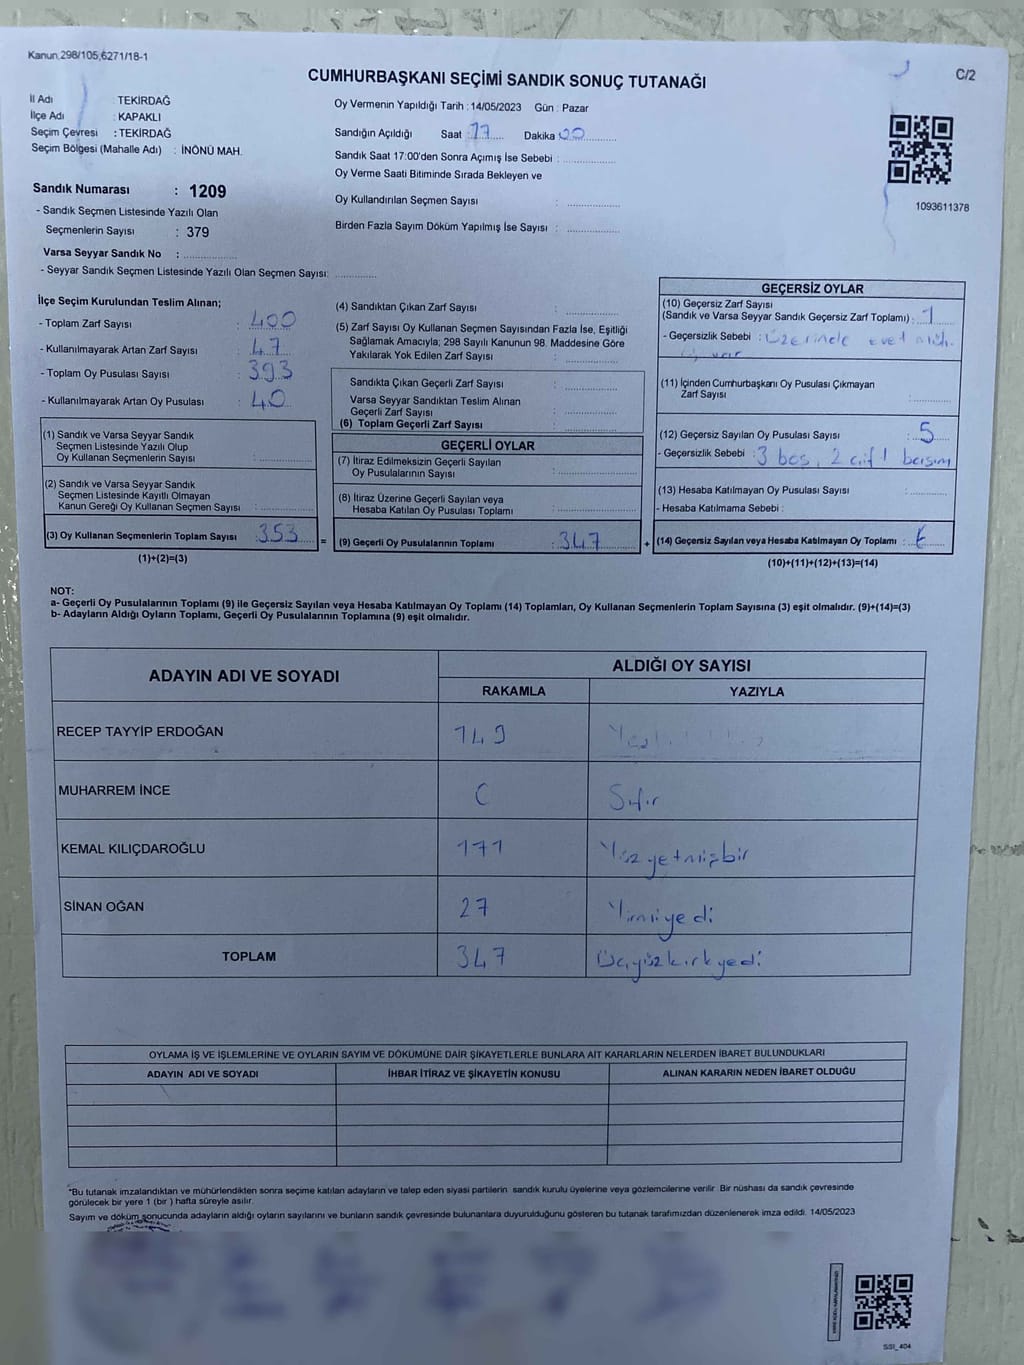 Kanun,298/105,6271/18-1
C/2
CUMHURBAŞKANI SEÇİMİ SANDIK SONUÇ TUTANAĞI
İl Adı : TEKİRDAĞ
İlçe Adı : KAPAKLI
Seçim Çevresi : TEKİRDAĞ
Seçim Bölgesi (Mahalle Adı) : İNÖNÜ MAH.
Sandık Numarası : 1209
- Sandık Seçmen Listesinde Yazılı Olan
Seçmenlerin Sayısı : 379
Varsa Seyyar Sandık No :
- Seyyar Sandık Seçmen Listesinde Yazılı Olan Seçmen Sayısı:
Oy Vermenin Yapıldığı Tarih : 14/05/2023 Gün : Pazar
Sandığın Açıldığı Saat : 17 Dakika 00
Sandık Saat 17:00'den Sonra Açımış İse Sebebi :
Oy Verme Saati Bitiminde Sırada Bekleyen ve
Oy Kullandırılan Seçmen Sayısı :
Birden Fazla Sayım Döküm Yapılmış İse Sayısı :
1093611378
İlçe Seçim Kurulundan Teslim Alınan;
- Toplam Zarf Sayısı : 400
- Kullanılmayarak Artan Zarf Sayısı : 47
- Toplam Oy Pusulası Sayısı : 393
- Kullanılmayarak Artan Oy Pusulası : 40
(1) Sandık ve Varsa Seyyar Sandık
Seçmen Listesinde Yazılı Olup
Oy Kullanan Seçmenlerin Sayısı :
(2) Sandık ve Varsa Seyyar Sandık
Seçmen Listesinde Kayıtlı Olmayan
Kanun Gereği Oy Kullanan Seçmen Sayısı :
(3) Oy Kullanan Seçmenlerin Toplam Sayısı : 353 =
(1)+(2)=(3)
(4) Sandıktan Çıkan Zarf Sayısı :
(5) Zarf Sayısı Oy Kullanan Seçmen Sayısından Fazla İse, Eşitliği
Sağlamak Amacıyla; 298 Sayılı Kanunun 98. Maddesine Göre
Yakılarak Yok Edilen Zarf Sayısı :
Sandıkta Çıkan Geçerli Zarf Sayısı :
Varsa Seyyar Sandıktan Teslim Alınan
Geçerli Zarf Sayısı :
(6) Toplam Geçerli Zarf Sayısı :
GEÇERLİ OYLAR
(7) İtiraz Edilmeksizin Geçerli Sayılan
Oy Pusulalarının Sayısı :
(8) İtiraz Üzerine Geçerli Sayılan veya
Hesaba Katılan Oy Pusulası Toplamı :
(9) Geçerli Oy Pusulalarının Toplamı : 347 +
GEÇERSİZ OYLAR
(10) Geçersiz Zarf Sayısı
(Sandık ve Varsa Seyyar Sandık Geçersiz Zarf Toplamı) : 1
- Geçersizlik Sebebi : Üzerinde evet
(11) İçinden Cumhurbaşkanı Oy Pusulası Çıkmayan
Zarf Sayısı :
(12) Geçersiz Sayılan Oy Pusulası Sayısı : 5
- Geçersizlik Sebebi : 3 boş, 2 çift
(13) Hesaba Katılmayan Oy Pusulası Sayısı :
- Hesaba Katılmama Sebebi :
(14) Geçersiz Sayılan veya Hesaba Katılmayan Oy Toplamı : 6
(10)+(11)+(12)+(13)=(14)
NOT:
a- Geçerli Oy Pusulalarının Toplamı (9) ile Geçersiz Sayılan veya Hesaba Katılmayan Oy Toplamı (14) Toplamları, Oy Kullanan Seçmenlerin Toplam Sayısına (3) eşit olmalıdır. (9)+(14)=(3)
b- Adayların Aldığı Oyların Toplamı, Geçerli Oy Pusulalarının Toplamına (9) eşit olmalıdır.
ADAYIN ADI VE SOYADI ALDIĞI OY SAYISI
RAKAMLA YAZIYLA
RECEP TAYYİP ERDOĞAN 149
MUHARREM İNCE 0 Sıfır
KEMAL KILIÇDAROĞLU 171 Yüzyetmişbir
SİNAN OĞAN 27 Yirmiyedi
TOPLAM 347 Üçyüzkırkyedi
OYLAMA İŞ VE İŞLEMLERİNE VE OYLARIN SAYIM VE DÖKÜMÜNE DAİR ŞİKAYETLERLE BUNLARA AİT KARARLARIN NELERDEN İBARET BULUNDUKLARI
ADAYIN ADI VE SOYADI İHBAR İTİRAZ VE ŞİKAYETİN KONUSU ALINAN KARARIN NEDEN İBARET OLDUĞU
*Bu tutanak imzalandıktan ve mühürlendikten sonra seçime katılan adayların ve talep eden siyasi partilerin sandık kurulu üyelerine veya gözlemcilerine verilir. Bir nüshası da sandık çevresinde
görülecek bir yere 1 (bir ) hafta süreyle asılır.
Sayım ve döküm sonucunda adayların aldığı oyların sayılarını ve bunların sandık çevresinde bulunanlara duyurulduğunu gösteren bu tutanak tarafımızdan düzenlenerek imza edildi. 14/05/2023
SSI_404